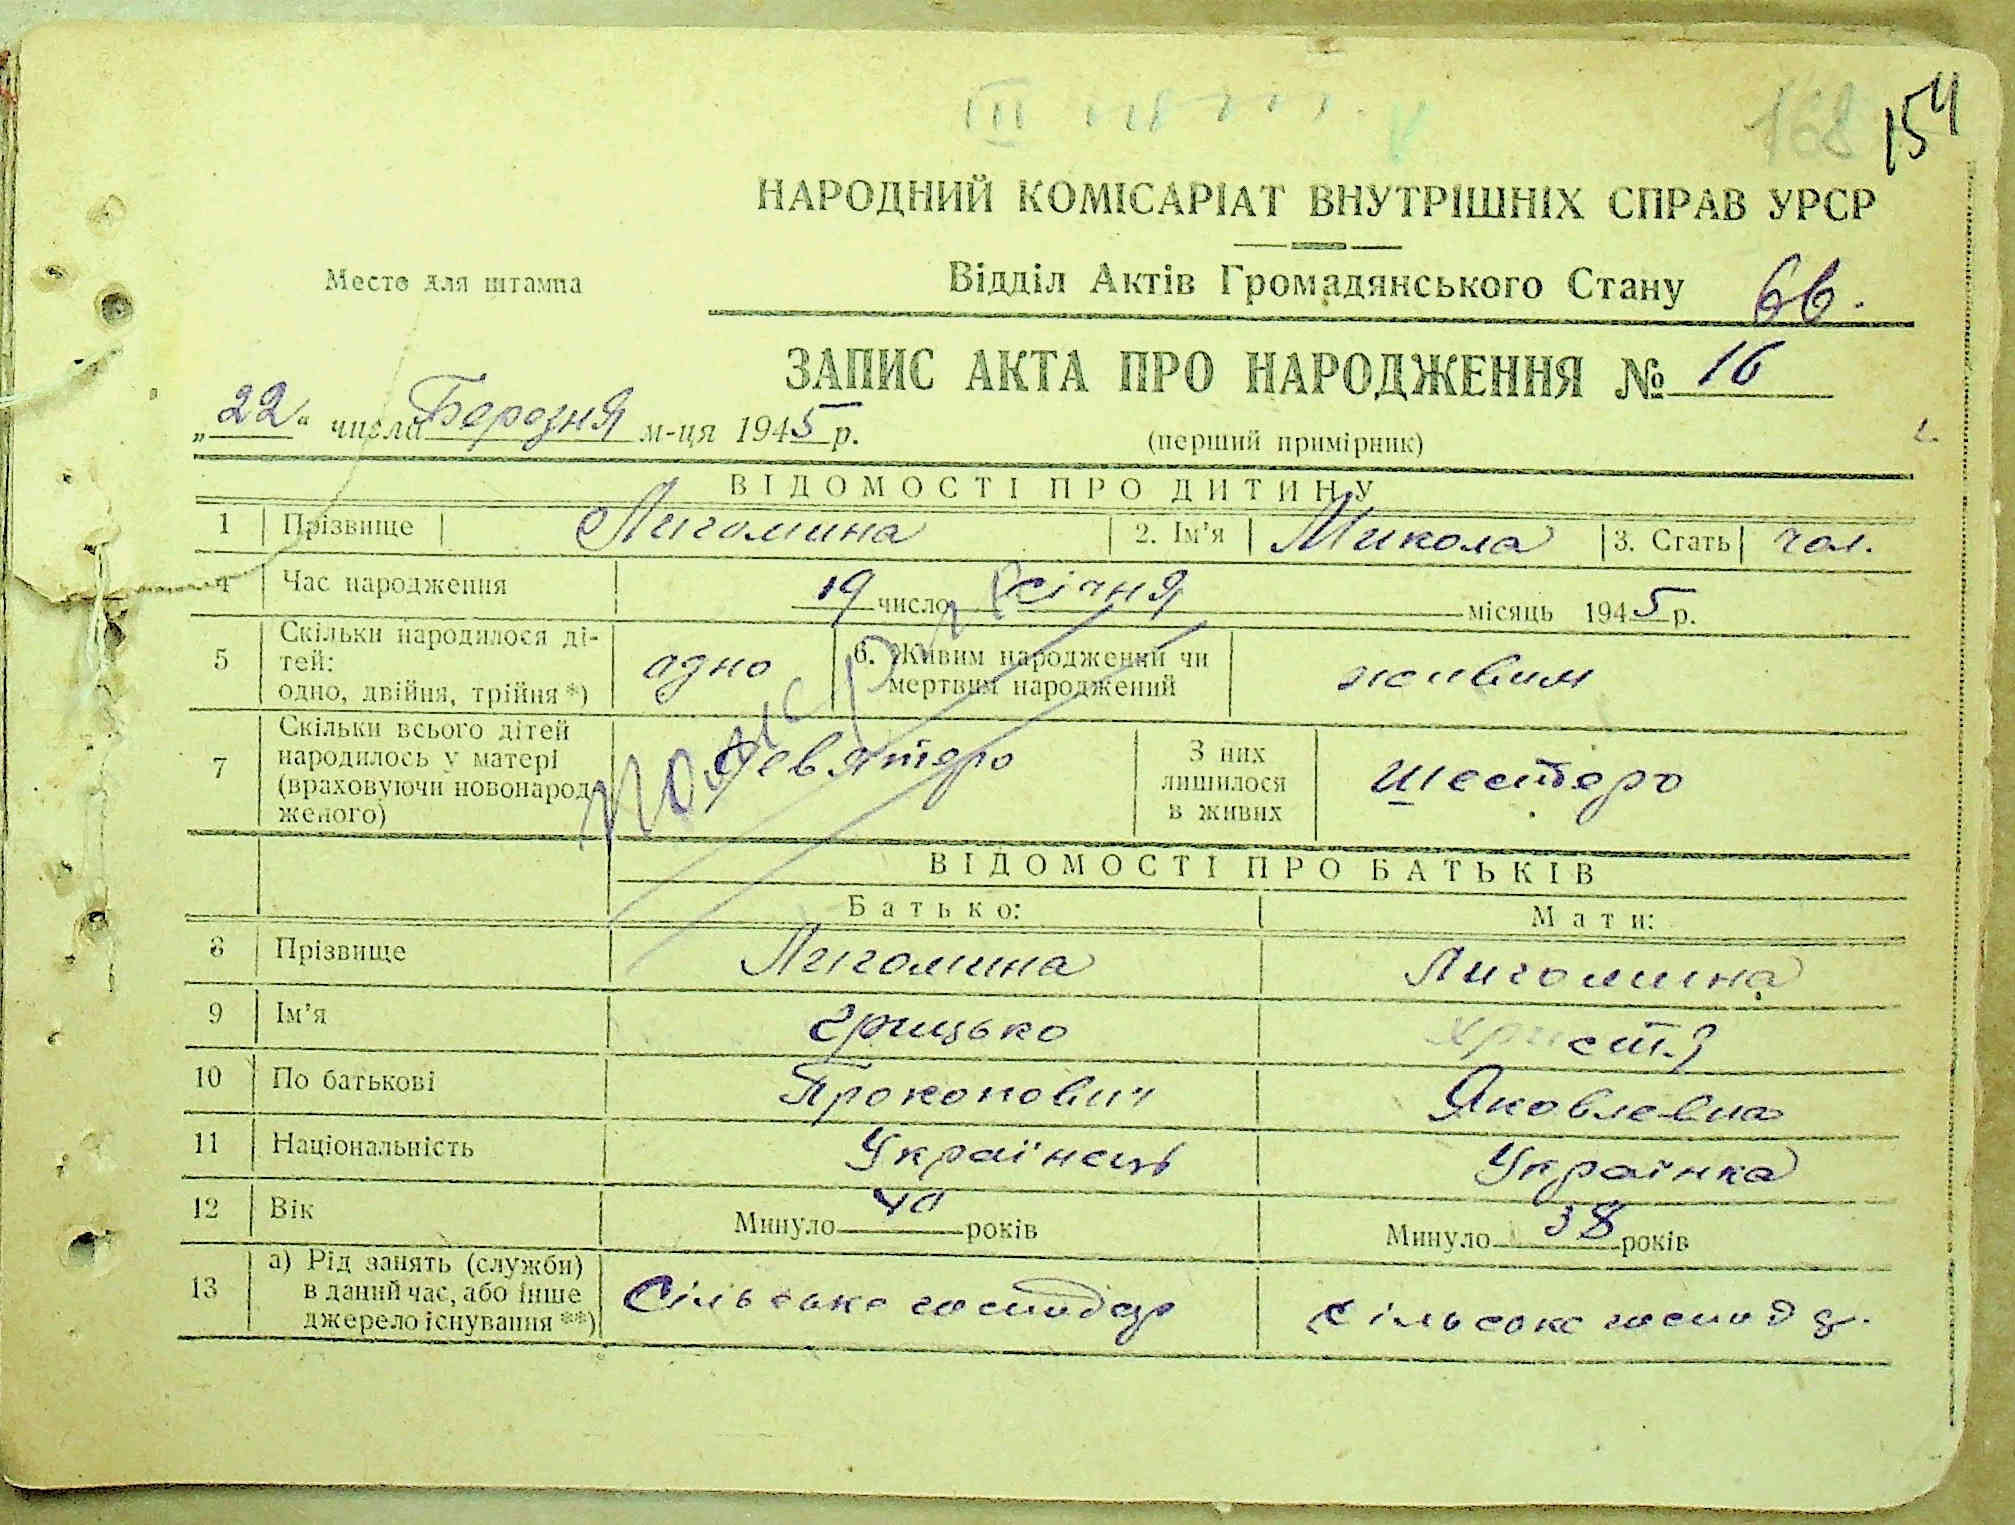 168 154
НАРОДНИЙ КОМІСАРІАТ ВНУТРІШНІХ СПРАВ УРСР
Место для штампа
Відділ Актів Громадянського Стану 6в.
ЗАПИС АКТА ПРО НАРОДЖЕННЯ № 16
„22“ числа Березня м-ця 1945 р.
(перший примірник)
ВІДОМОСТІ ПРО ДИТИНУ
1 Прізвище Лигомина 2. Ім’я Микола 3. Стать чол.
4 Час народження 19 число січня місяць 1945 р.
5 Скільки народилося ді-
тей:
одно, двійня, трійня *) одно 6. Живим народжений чи
мертвим народжений живим
7 Скільки всього дітей
народилось у матері
(враховуючи новонарод-
женого) Девятеро З них
лишилося
в живих шестеро
ВІДОМОСТІ ПРО БАТЬКІВ
Батько: Мати:
8 Прізвище Лигомина Лигомина
9 Ім’я Грицько
10 По батькові Прокопович Яковлевна
11 Національність Українець Українка
12 Вік Минуло 40 років Минуло 38 років
13 а) Рід занять (служби)
в даний час, або інше
джерело існування **) Сільське господар сільське господ.